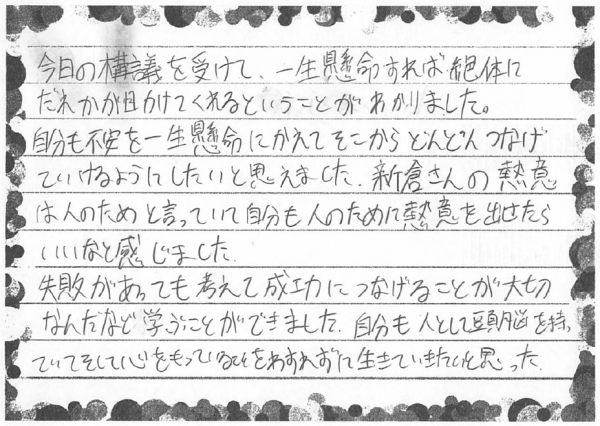 今日の構議を受けて、一生懸命すれば絶体に
だれかが目かけてくれるということがわかりました。
自分も不安を一生懸命にかえてそこからどんどんつなげ
ていけるようにしたいと思えました。新倉さんの熱意
は人のためと言っていて自分も人のために熱意を出せたら
いいなと感じました。
失敗があっても考えて成功につなげることが大切
なんだなど学ぶことができました。自分も人として頭脳を持っ
ていてそして心をもっていることをわすれずに生きていきたいと思った。